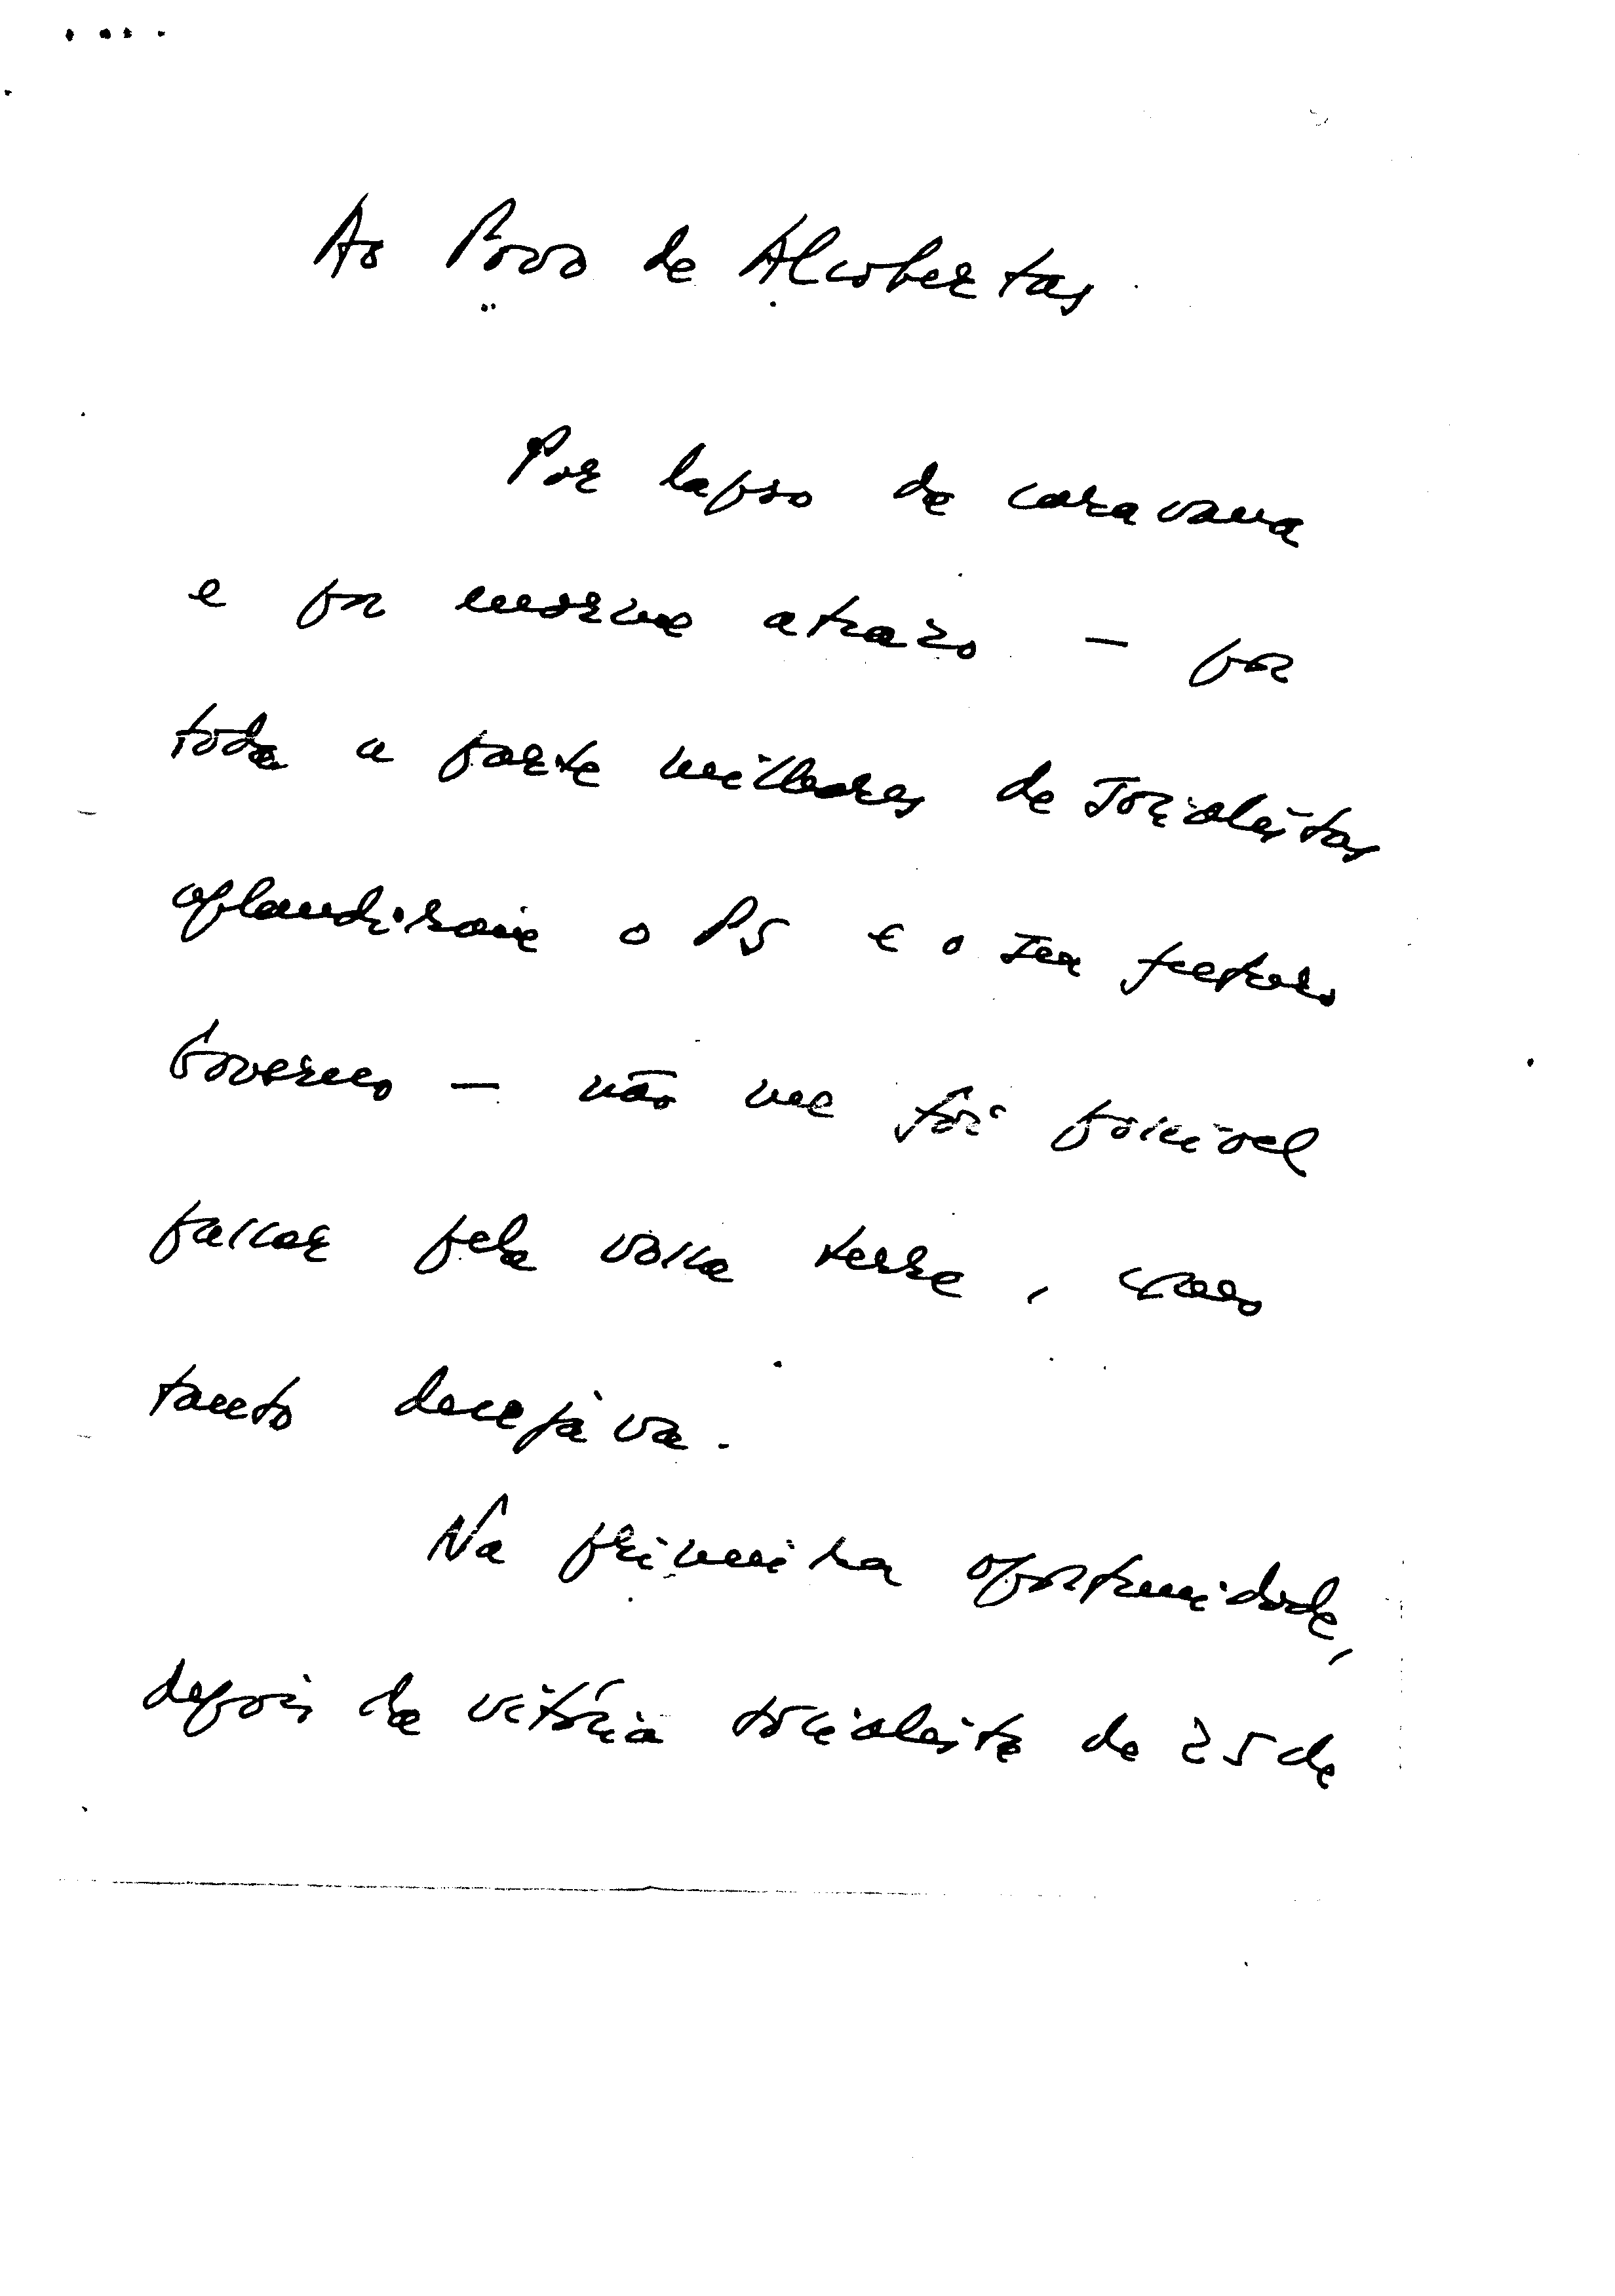 Ao Povo de Alcobertas
Por lapso de caravana
e por enorme atrazo — por
toda a parte milhares de Socialistas
aplaudiram o PS e o seu futuro
Governo — não me foi possível
passar pela vossa terra, como
tanto desejáva.
Na primeira oportunidade,
depois da vitória socialista de 25 de